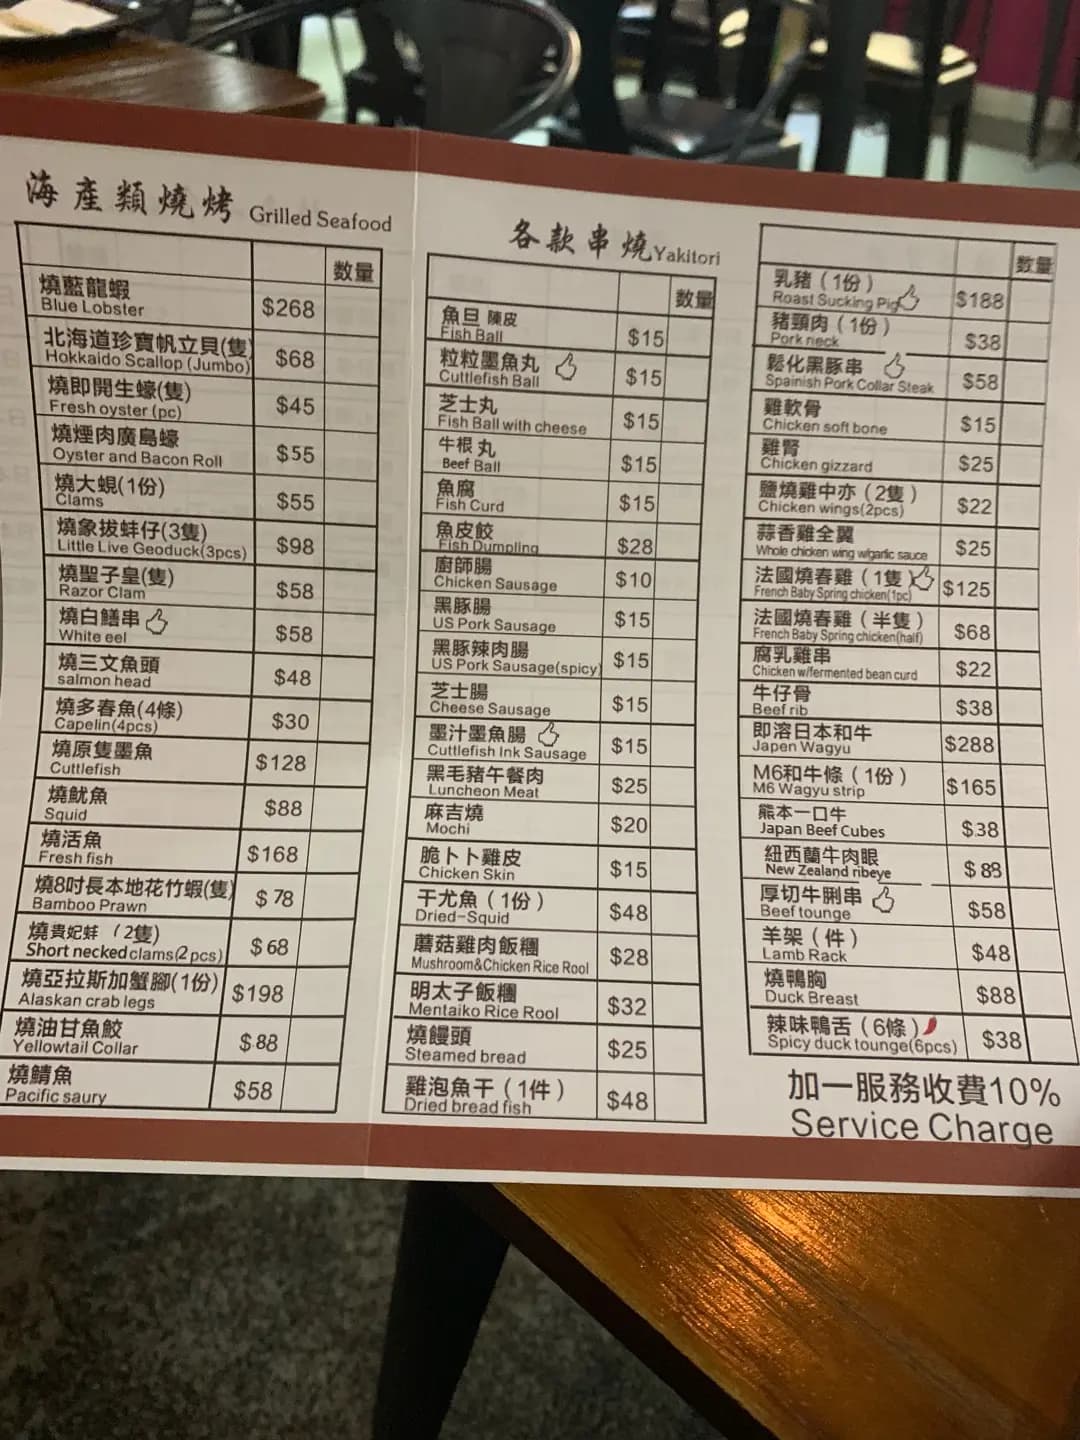 海產類燒烤 Grilled Seafood
数量
燒藍龍蝦 $268
Blue Lobster
北海道珍寶帆立貝(隻) $68
Hokkaido Scallop (Jumbo)
燒即開生蠔(隻) $45
Fresh oyster (pc)
燒煙肉廣島蠔 $55
Oyster and Bacon Roll
燒大蜆(1份) $55
Clams
燒象拔蚌仔(3隻) $98
Little Live Geoduck(3pcs)
燒聖子皇(隻) $58
Razor Clam
燒白鱔串 $58
White eel
燒三文魚頭 $48
salmon head
燒多春魚(4條) $30
Capelin(4pcs)
燒原隻墨魚 $128
Cuttlefish
燒魷魚 $88
Squid
燒活魚 $168
Fresh fish
燒8吋長本地花竹蝦(隻) $78
Bamboo Prawn
燒貴妃蚌 (2隻) $68
Short necked clams(2pcs)
燒亞拉斯加蟹腳(1份) $198
Alaskan crab legs
燒油甘魚鮫 $88
Yellowtail Collar
燒鯖魚 $58
Pacific saury
各款串燒 Yakitori
数量
魚旦 陳皮 $15
Fish Ball
粒粒墨魚丸 $15
Cuttlefish Ball
芝士丸 $15
Fish Ball with cheese
牛根丸 $15
Beef Ball
魚腐 $15
Fish Curd
魚皮餃 $28
Fish Dumpling
廚師腸 $10
Chicken Sausage
黑豚腸 $15
US Pork Sausage
黑豚辣肉腸 $15
US Pork Sausage(spicy)
芝士腸 $15
Cheese Sausage
墨汁墨魚腸 $15
Cuttlefish Ink Sausage
黑毛豬午餐肉 $25
Luncheon Meat
麻吉燒 $20
Mochi
脆卜卜雞皮 $15
Chicken Skin
干尤魚（1份） $48
Dried-Squid
蘑菇雞肉飯糰 $28
Mushroom&Chicken Rice Rool
明太子飯糰 $32
Mentaiko Rice Rool
燒饅頭 $25
Steamed bread
雞泡魚干（1件） $48
Dried bread fish
数量
乳豬（1份） $188
Roast Sucking Pig
豬頸肉（1份） $38
Pork neck
鬆化黑豚串 $58
Spainish Pork Collar Steak
雞軟骨 $15
Chicken soft bone
雞腎 $25
Chicken gizzard
鹽燒雞中亦（2隻） $22
Chicken wings(2pcs)
蒜香雞全翼 $25
Whole chicken wing w/garlic sauce
法國燒春雞（1隻） $125
French Baby Spring chicken(1pc)
法國燒春雞（半隻） $68
French Baby Spring chicken(half)
腐乳雞串 $22
Chicken w/fermented bean curd
牛仔骨 $38
Beef rib
即溶日本和牛 $288
Japen Wagyu
M6和牛條（1份） $165
M6 Wagyu strip
熊本一口牛 $38
Japan Beef Cubes
紐西蘭牛肉眼 $88
New Zealand ribeye
厚切牛脷串 $58
Beef tounge
羊架（件） $48
Lamb Rack
燒鴨胸 $88
Duck Breast
辣味鴨舌（6條） $38
Spicy duck tounge(6pcs)
加一服務收費10%
Service Charge